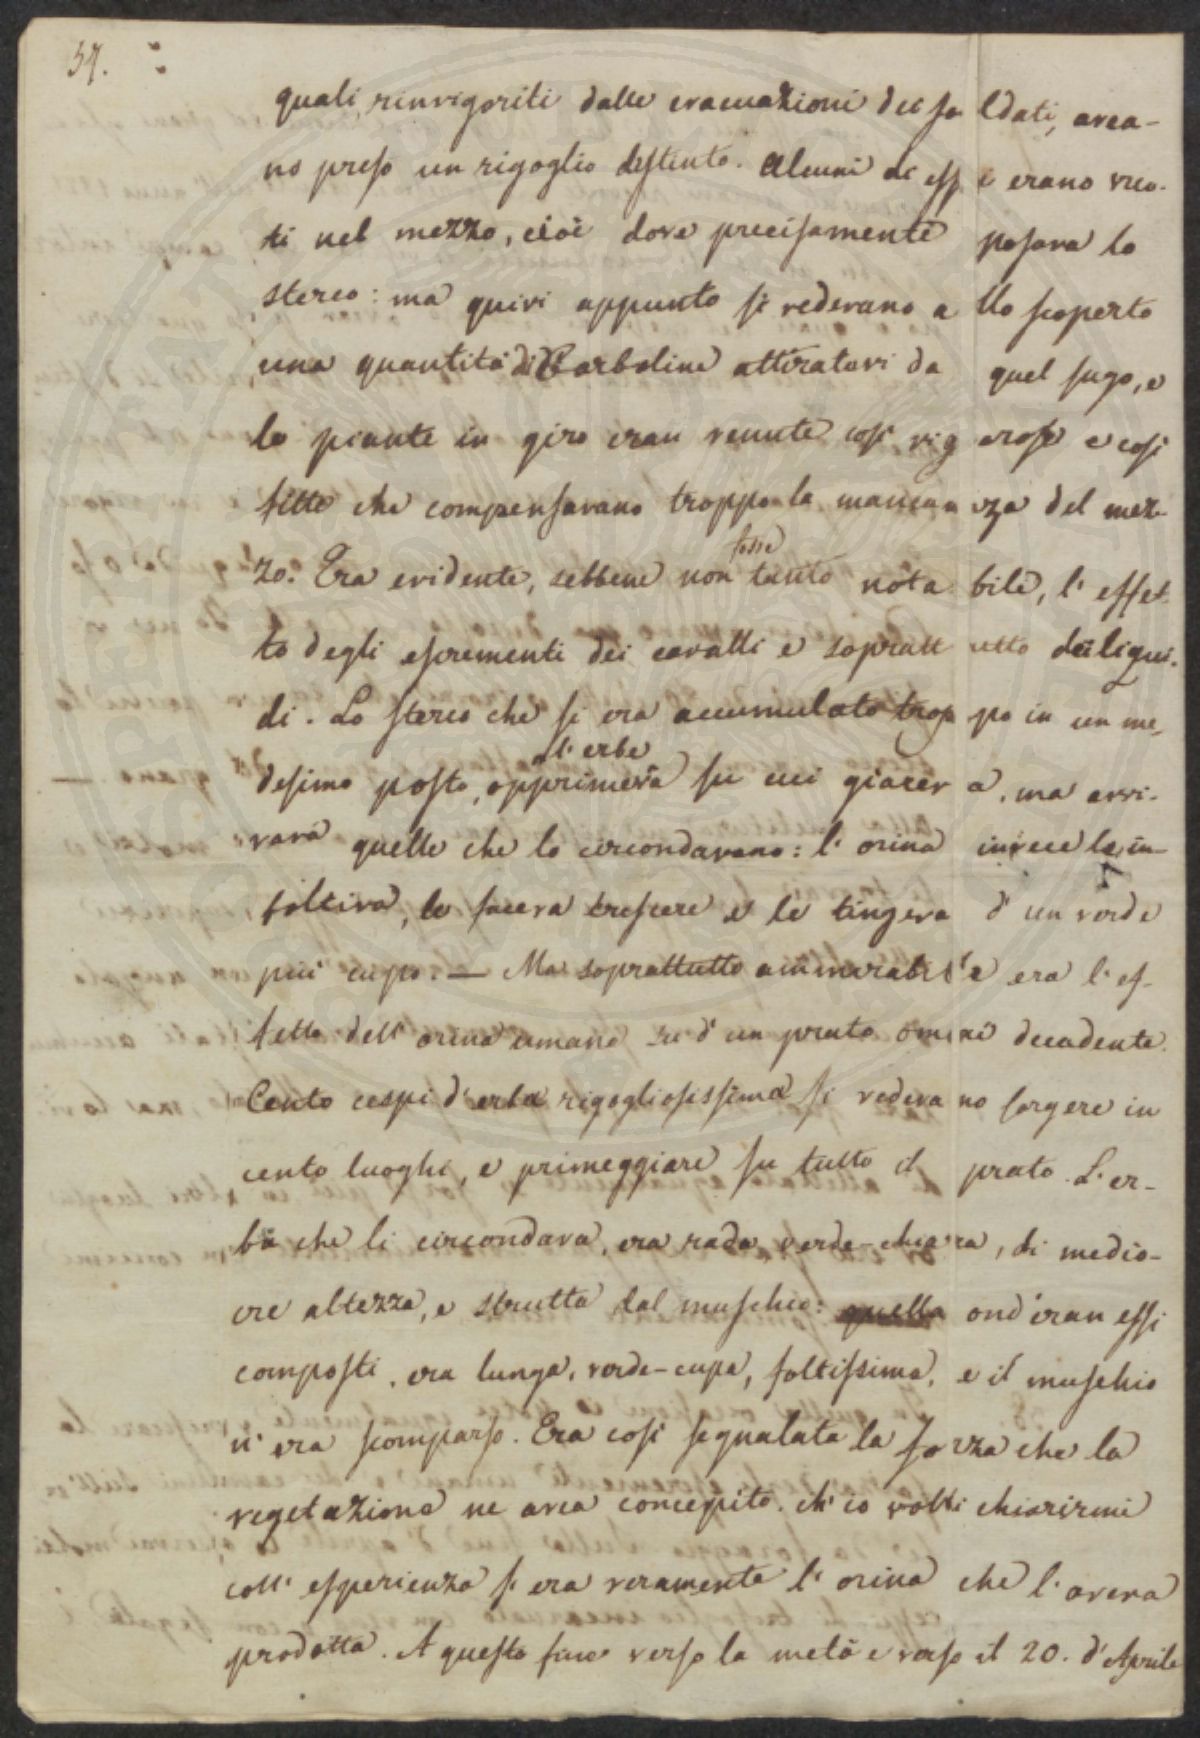 57.
quali, rinvigoriti dalle evacuazioni dei soldati, avea-
no preso un rigoglio distinto. Alcuni di essi erano vuo-
ti nel mezzo, cioè dove precisamente posava lo
stereo: ma quivi appunto si vedevano allo scoperto
una quantità di Barboline attiratevi da quel sugo, e
le piante in giro eran venute così vigorose e così
fitte che compensavano troppo la mancanza del mez-
zo. Era evidente, sebbene non fosse tanto notabile, l'effet-
to degli escrementi dei cavalli e soprattutto dei liqui-
di. Lo sterco che si era accumulato troppo in un me-
desimo posto, opprimeva l'erbe su cui giaceva, ma avvi-
vava quelle che lo circondavano: l'orina invece le in-
foltiva, le faceva crescere e le tingeva d'un verde
più cupo. — Ma soprattutto ammirabile era l'ef-
fetto dell'orina umana su d'un prato omai decadente.
Cento cespi d'erba rigogliosissima si vedevano sorgere in
cento luoghi, e primeggiare su tutto il prato. L'er-
ba che li circondava, era rada, verde-chiara, di medio-
cre altezza, e strutta dal muschio: quella ond'eran essi
composti, era lunga, verde-cupa, foltissima, e il muschio
n'era scomparso. Era così segnalata la forza che la
vegetazione ne avea concepito, ch'io volli chiarirmi
coll'esperienza se era veramente l'orina che l'aveva
prodotta. A questo fine verso la metà e verso il 20. d'Aprile